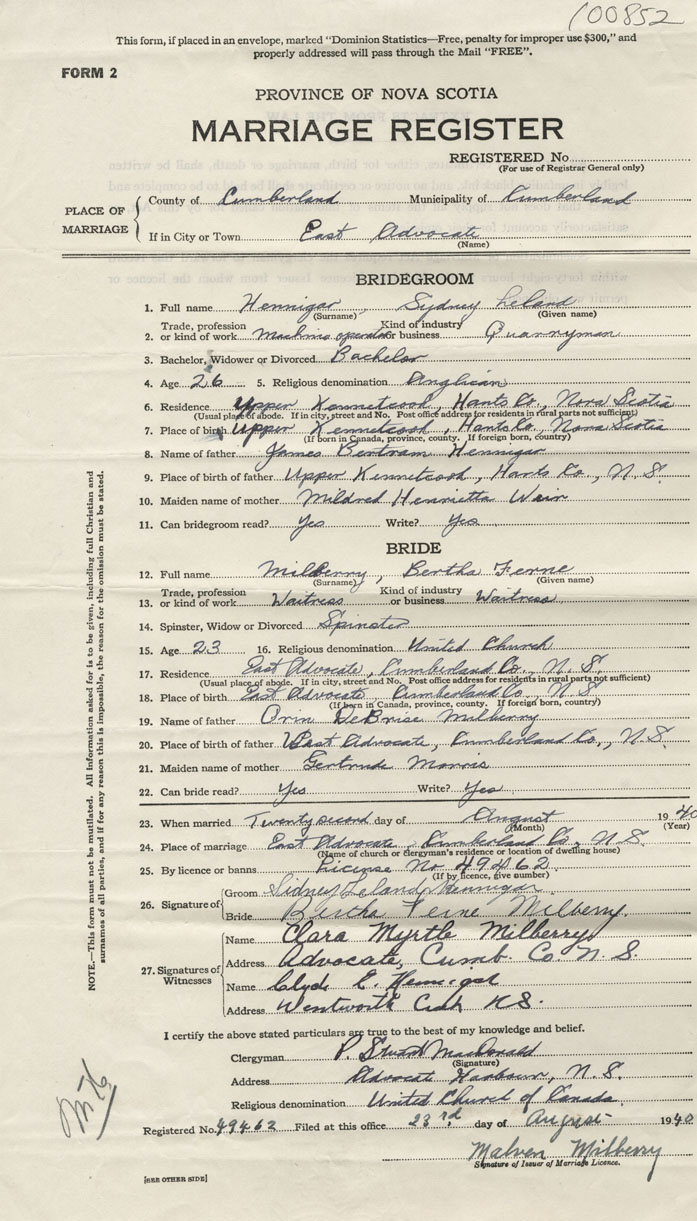 100852
This form, if placed in an envelope, marked "Dominion Statistics—Free, penalty for improper use $300," and
properly addressed will pass through the Mail "FREE".
FORM 2
PROVINCE OF NOVA SCOTIA
MARRIAGE REGISTER
REGISTERED No.
(For use of Registrar General only)
PLACE OF MARRIAGE
County of Cumberland Municipality of Cumberland
If in City or Town East Advocate
(Name)
BRIDEGROOM
1. Full name Hennigar, Sydney Leland
(Surname) (Given name)
2. Trade, profession or kind of work Machine operator Kind of industry or business Quarryman
3. Bachelor, Widower or Divorced Bachelor
4. Age 26 5. Religious denomination Anglican
6. Residence Upper Kennetcook, Hants Co., Nova Scotia
(Usual place of abode. If in city, street and No. Post office address for residents in rural parts not sufficient)
7. Place of birth Upper Kennetcook, Hants Co., Nova Scotia
(If born in Canada, province, county. If foreign born, country)
8. Name of father James Bertram Hennigar
9. Place of birth of father Upper Kennetcook, Hants Co., N.S.
10. Maiden name of mother Mildred Henrietta Weir
11. Can bridegroom read? Yes Write? Yes
BRIDE
12. Full name Milberry, Bertha Ferne
(Surname) (Given name)
13. Trade, profession or kind of work Waitress Kind of industry or business Waitress
14. Spinster, Widow or Divorced Spinster
15. Age 23 16. Religious denomination United Church
17. Residence East Advocate, Cumberland Co., N.S.
(Usual place of abode. If in city, street and No. Post office address for residents in rural parts not sufficient)
18. Place of birth East Advocate, Cumberland Co., N.S.
(If born in Canada, province, county. If foreign born, country)
19. Name of father Orin DeBrise Milberry
20. Place of birth of father East Advocate, Cumberland Co., N.S.
21. Maiden name of mother Gertrude Morris
22. Can bride read? Yes Write? Yes
23. When married Twenty second day of August 1940
(Month) (Year)
24. Place of marriage East Advocate, Cumberland Co., N.S.
(Name of church or clergyman's residence or location of dwelling house)
25. By licence or banns License No 49462
(If by licence, give number)
26. Signature of Groom Sidney Leland Hennigar
Bride Bertha Ferne Milberry.
27. Signatures of Witnesses
Name Clara Myrtle Milberry
Address Advocate, Cumb. Co. N.S.
Name Clyde E. Hennigar
Address Wentworth N.S.
I certify the above stated particulars are true to the best of my knowledge and belief.
Clergyman P. Stuart MacDonald
(Signature)
Address Advocate Harbour, N.S.
Religious denomination United Church of Canada
Registered No. 49462 Filed at this office 23rd day of August 1940
Malven Milberry
Signature of Issuer of Marriage Licence.
[SEE OTHER SIDE]
NOTE.—This form must not be mutilated. All information asked for is to be given, including full Christian and
surnames of all parties, and if for any reason this is impossible, the reason for the omission must be stated.